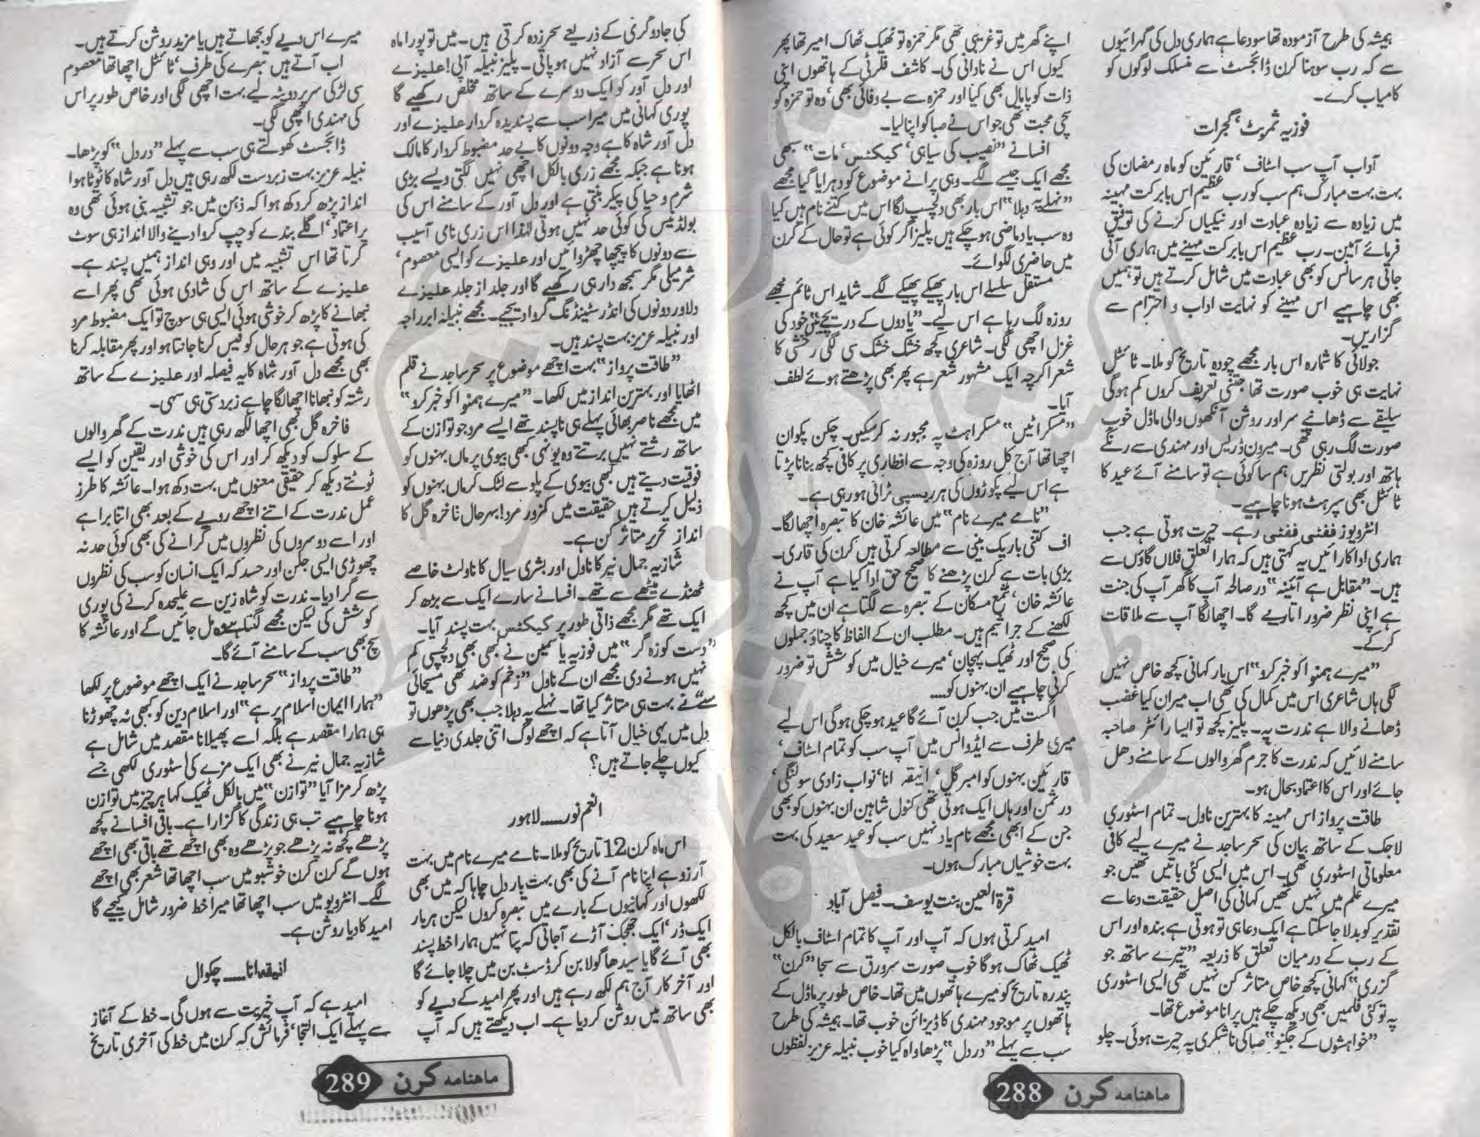 ہمیشہ کی طرح آزمودہ تھا سو دعا ہے ہماری دل کی گہرائیوں
سے کہ رب سوہنا کرن ڈائجسٹ سے منسلک لوگوں کو
کامیاب کرے۔
فوزیہ ثمربٹ، گجرات
آداب آپ سب اسٹاف، قارئین کو ماہ رمضان کی
بہت بہت مبارک ہم سب کو رب عظیم اس بابرکت مہینہ
میں زیادہ سے زیادہ عبادت اور نیکیاں کرنے کی توفیق
فرمائے آمین۔ رب عظیم اس بابرکت مہینے میں ہماری آتی
جاتی ہر سانس کو بھی عبادت میں شامل کرتے ہیں تو ہمیں
بھی چاہیے اس مہینے کو نہایت اداب و احترام سے
گزاریں۔
جولائی کا شمارہ اس بار مجھے چودہ تاریخ کو ملا۔ ٹائٹل
نہایت ہی خوب صورت تھا جتنی تعریف کروں کم ہوگی
سلیقے سے ڈھانپے سر اور روشن آنکھوں والی ماڈل خوب
صورت لگ رہی تھی۔ میرون ڈریس اور مہندی سے رنگے
ہاتھ اور بولتی نظریں ہم سا کوئی ہے تو سامنے آئے عید کا
ٹائٹل بھی سپر ہٹ ہونا چاہیے۔
انٹرویوز ففٹی ففٹی رہے۔ حیرت ہوتی ہے جب
ہماری اداکارائیں یہ کہتی ہیں کہ ہمارا تعلق فلاں گاؤں سے
ہیں۔ "مقابل ہے آئینہ" در صالحہ آپ کا گھر آپ کی جنت
ہے اپنی نظر ضرور اتاریے گا۔ اچھا لگا آپ سے ملاقات
کرکے۔
"میرے ہمنوا کو خبر کرو" اس بار کہانی کچھ خاص نہیں
لگی ہاں شاعری اس میں کمال کی تھی اب میران کیا غضب
ڈھانے والا ہے ندرت پہ۔ پلیز کچھ تو ایسا رائٹر صاحبہ
سامنے لائیں کہ ندرت کا جرم گھر والوں کے سامنے دھل
جائے اور اس کا اعتماد بحال ہو۔
طاقت پرواز اس مہینہ کا بہترین ناول۔ تمام اسٹوری
لاجک کے ساتھ بیان کی سحر ساجد نے میرے لیے کافی
معلوماتی اسٹوری تھی۔ اس میں ایسی کئی باتیں تھیں جو
میرے علم میں نہیں تھیں کہانی کی اصل حقیقت دعا سے
تقدیر کو بدلا جاسکتا ہے ایک دعا ہی تو ہوتی ہے بندہ اور اس
کے رب کے درمیان تعلق کا ذریعہ "تیرے ساتھ جو
گزری" کہانی کچھ خاص متاثر کن نہیں تھی ایسی اسٹوری
پہ تو کئی فلمیں بھی دیکھ چکے ہیں پرانا موضوع تھا۔
"خواہشوں کے جگنو" صبا کی ناشکری پہ حیرت ہوئی۔ چلو
اپنے گھر میں تو غریبی تھی مگر حمزہ تو ٹھیک ٹھاک امیر تھا پھر
کیوں اس نے نادانی کی۔ کاشف فلرٹی کے ہاتھوں اپنی
ذات کو پامال بھی کیا اور حمزہ سے بے وفائی بھی، وہ تو حمزہ کو
سچی محبت تھی جو اس نے صبا کو اپنا لیا۔
افسانے "نصیب کی سیاہی، کیکٹس، مات" سبھی
مجھے ایک جیسے لگے۔ وہی پرانے موضوع کو دہرایا گیا مجھے
"نہلے پہ دہلا" اس بار بھی دلچسپ لگا اس میں کتنے نام ہیں کیا
وہ سب یاد ماضی ہوچکے ہیں پلیز اگر کوئی ہے تو حال کے کرن
میں حاضری لگوائے۔
مستقل سلسلے اس بار پھیکے پھیکے لگے۔ شاید اس ٹائم مجھے
روزہ لگ رہا ہے اس لیے۔ "یادوں کے دریچے میں" خود کی
غزل اچھی لگی۔ شاعری کچھ خشک خشک سی لگی رخشی کا
شعر اگرچہ ایک مشہور شعر ہے پھر بھی پڑھتے ہوئے لطف
آیا۔
"مسکرائیں" مسکراہٹ پہ مجبور نہ کرسکیں۔ چکن پکوان
اچھا تھا آج کل روزہ کی وجہ سے افطاری پر کافی کچھ بنانا پڑتا
ہے اس لیے پکوڑوں کی ہر ریسیپی ٹرائی ہورہی ہے۔
"نامے میرے نام" میں عائشہ خان کا تبصرہ اچھا لگا۔
اف کتنی باریک بینی سے مطالعہ کرتی ہیں کرن کی قاری۔
بڑی بات ہے کرن پڑھنے کا صحیح حق ادا کیا ہے آپ نے
عائشہ خان، شمع مسکان کے تبصرہ سے لگتا ہے ان میں کچھ
لکھنے کے جراثیم ہیں۔ مطلب ان کے الفاظ کا چناؤ جملوں
کی صحیح اور ٹھیک پہچان، میرے خیال میں کوشش تو ضرور
کرنی چاہیے ان بہنوں کو۔۔۔
اگست میں جب کرن آئے گا عید ہوچکی ہوگی اس لیے
میری طرف سے ایڈوانس میں آپ سب کو تمام اسٹاف،
قارئین بہنوں کو امبر گل، انیقہ انا، نواب زادی سولنگی،
در ثمن اور ہاں ایک ہوتی تھی کنول شاہین ان بہنوں کو بھی
جن کے ابھی مجھے نام یاد نہیں سب کو عید سعید کی بہت
بہت خوشیاں مبارک ہوں۔
قرۃ العین بنت یوسف۔ فیصل آباد
امید کرتی ہوں کہ آپ اور آپ کا تمام اسٹاف بالکل
ٹھیک ٹھاک ہوگا خوب صورت سرورق سے سجا "کرن"
پندرہ تاریخ کو میرے ہاتھوں میں تھا۔ خاص طور پر ماڈل کے
ہاتھوں پر موجود مہندی کا ڈیزائن خوب تھا۔ ہمیشہ کی طرح
سب سے پہلے "در دل" پڑھا واہ کیا خوب نبیلہ عزیز لفظوں
ماہنامہ کرن 288
کی جادوگری کے ذریعے سحر زدہ کرتی ہیں۔ میں تو پورا ماہ
اس سحر سے آزاد نہیں ہوپاتی۔ پلیز نبیلہ آپی! علیزے
اور دل آور کو ایک دوسرے کے ساتھ مخلص رکھیے گا
پوری کہانی میں میرا سب سے پسندیدہ کردار علیزے اور
دل آور شاہ کا ہے وجہ دونوں کا بے حد مضبوط کردار کا مالک
ہونا ہے جبکہ مجھے زری بالکل اچھی نہیں لگتی ویسے بڑی
شرم و حیا کی پیکر بنتی ہے اور دل آور کے سامنے اس کی
بولڈنیس کی کوئی حد نہیں ہوتی لہٰذا اس زری نامی آسیب
سے دونوں کا پیچھا چھڑوائیں اور علیزے کو ایسی معصوم،
شرمیلی مگر سمجھ دار ہی رکھیے گا اور جلد از جلد علیزے
دلاور دونوں کی انڈر سٹینڈنگ کروا دیجیے۔ مجھے نبیلہ ابر راجہ
اور نبیلہ عزیز بہت پسند ہیں۔
"طاقت پرواز" بہت اچھے موضوع پر سحر ساجد نے قلم
اٹھایا اور بہترین انداز میں لکھا۔ "میرے ہمنوا کو خبر کرو"
میں مجھے ناصر بھائی پہلے ہی ناپسند تھے ایسے مرد جو توازن کے
ساتھ رشتے نہیں برتتے وہ یونہی کبھی بیوی پر ماں بہنوں کو
فوقیت دیتے ہیں کبھی بیوی کے پلو سے لٹک کر ماں بہنوں کو
ذلیل کرتے ہیں حقیقت میں کمزور مرد! بہرحال فاخرہ گل کا
انداز تحریر متاثر کن ہے۔
شازیہ جمال نیر کا ناول اور بشری سیال کا ناولٹ خاصے
ٹھنڈے میٹھے سے تھے۔ افسانے سارے ایک سے بڑھ کر
ایک تھے مگر مجھے ذاتی طور پر کیکٹس بہت پسند آیا۔
"دست کوزہ گر" میں فوزیہ یاسمین نے کبھی بھی دلچسپی کم
نہیں ہونے دی مجھے ان کے ناول "زخم کو ضد تھی مسیحائی
سے" نے بہت ہی متاثر کیا تھا۔ نہلے پہ دہلا جب بھی پڑھوں تو
دل میں یہی خیال آتا ہے کہ اچھے لوگ اتنی جلدی دنیا سے
کیوں چلے جاتے ہیں؟
انعم نور۔۔۔ لاہور
اس ماہ کرن 12 تاریخ کو ملا۔ نامے میرے نام میں بہت
آرزو ہے اپنا نام آنے کی بھی بہت بار دل چاہا کہ میں بھی
لکھوں اور کہانیوں کے بارے میں تبصرہ کروں لیکن ہر بار
ایک ڈر، ایک جھجک آڑے آجاتی کہ پتا نہیں ہمارا خط پسند
بھی آئے گا یا سیدھا کولا بن کر ڈسٹ بن میں چلا جائے گا
اور آخر کار آج ہم لکھ رہے ہیں اور پھر امید کے دیے کو
بھی ساتھ میں روشن کردیا ہے۔ اب دیکھتے ہیں کہ آپ
میرے اس دیے کو بجھاتے ہیں یا مزید روشن کرتے ہیں۔
اب آتے ہیں تبصرے کی طرف، ٹائٹل اچھا تھا معصوم
سی لڑکی سر پر دوپٹہ لیے بہت اچھی لگی اور خاص طور پر اس
کی مہندی اچھی لگی۔
ڈائجسٹ کھولتے ہی سب سے پہلے "در دل" کو پڑھا۔
نبیلہ عزیز بہت زبردست لکھ رہی ہیں دل آور شاہ کا ٹوٹا ہوا
انداز پڑھ کر دکھ ہوا کہ ذہن میں جو تشبیہ بنی ہوئی تھی وہ
پر اعتماد، اگلے بندے کو چپ کروا دینے والا انداز ہی سوٹ
کرتا تھا اس تشبیہ میں اور وہی انداز ہمیں پسند ہے۔
علیزے کے ساتھ اس کی شادی ہوئی تھی پھر اسے
نبھانے کا پڑھ کر خوشی ہوئی ایسی ہی سوچ تو ایک مضبوط مرد
کی ہوتی ہے جو ہر حال کو فیس کرنا جانتا ہو اور پھر مقابلہ کرنا
بھی مجھے دل آور شاہ کا یہ فیصلہ اور علیزے کے ساتھ
رشتہ کو نبھانا اچھا لگا چاہے زبردستی ہی سہی۔
فاخرہ گل بھی اچھا لکھ رہی ہیں ندرت کے گھر والوں
کے سلوک کو دیکھ کر اور اس کی خوشی اور یقین کو ایسے
ٹوٹتے دیکھ کر حقیقی معنوں میں بہت دکھ ہوا۔ عائشہ کا طرز
عمل ندرت کے اتنے اچھے رویے کے بعد بھی اتنا برا ہے
اور اسے دوسروں کی نظروں میں گرانے کی بھی کوئی حد نہ
چھوڑی ایسی جلن اور حسد کہ ایک انسان کو سب کی نظروں
سے گرا دیا۔ ندرت کو شاہ زین سے علیحدہ کرنے کی پوری
کوشش کی لیکن مجھے لگتا ہے وہ مل جائیں گے اور عائشہ کا
سچ بھی سب کے سامنے آئے گا۔
"طاقت پرواز" سحر ساجد نے ایک اچھے موضوع پر لکھا
"ہمارا ایمان اسلام پر ہے" اور اسلام دین کو کبھی نہ چھوڑنا
ہی ہمارا مقصد ہے بلکہ اسے پھیلانا مقصد میں شامل ہے
شازیہ جمال نیر نے بھی ایک مزے کی اسٹوری لکھی جسے
پڑھ کر مزا آیا "توازن" میں بالکل ٹھیک کہا ہر چیز میں توازن
ہونا چاہیے تب ہی زندگی کا گزارا ہے۔ باقی افسانے کچھ
پڑھے کچھ نہ پڑھے جو پڑھے وہ بھی اچھے تھے باقی بھی اچھے
ہوں گے کرن کرن خوشبو میں سب اچھا تھا شعر بھی اچھے
لگے۔ انٹرویو میں سب اچھا تھا میرا خط ضرور شامل کیجیے گا
امید کا دیا روشن ہے۔
انیقہ انا۔۔۔ چکوال
امید ہے کہ آپ خیریت سے ہوں گی۔ خط کے آغاز
سے پہلے ایک التجا، فرمائش کہ کرن میں خط کی آخری تاریخ
ماہنامہ کرن 289